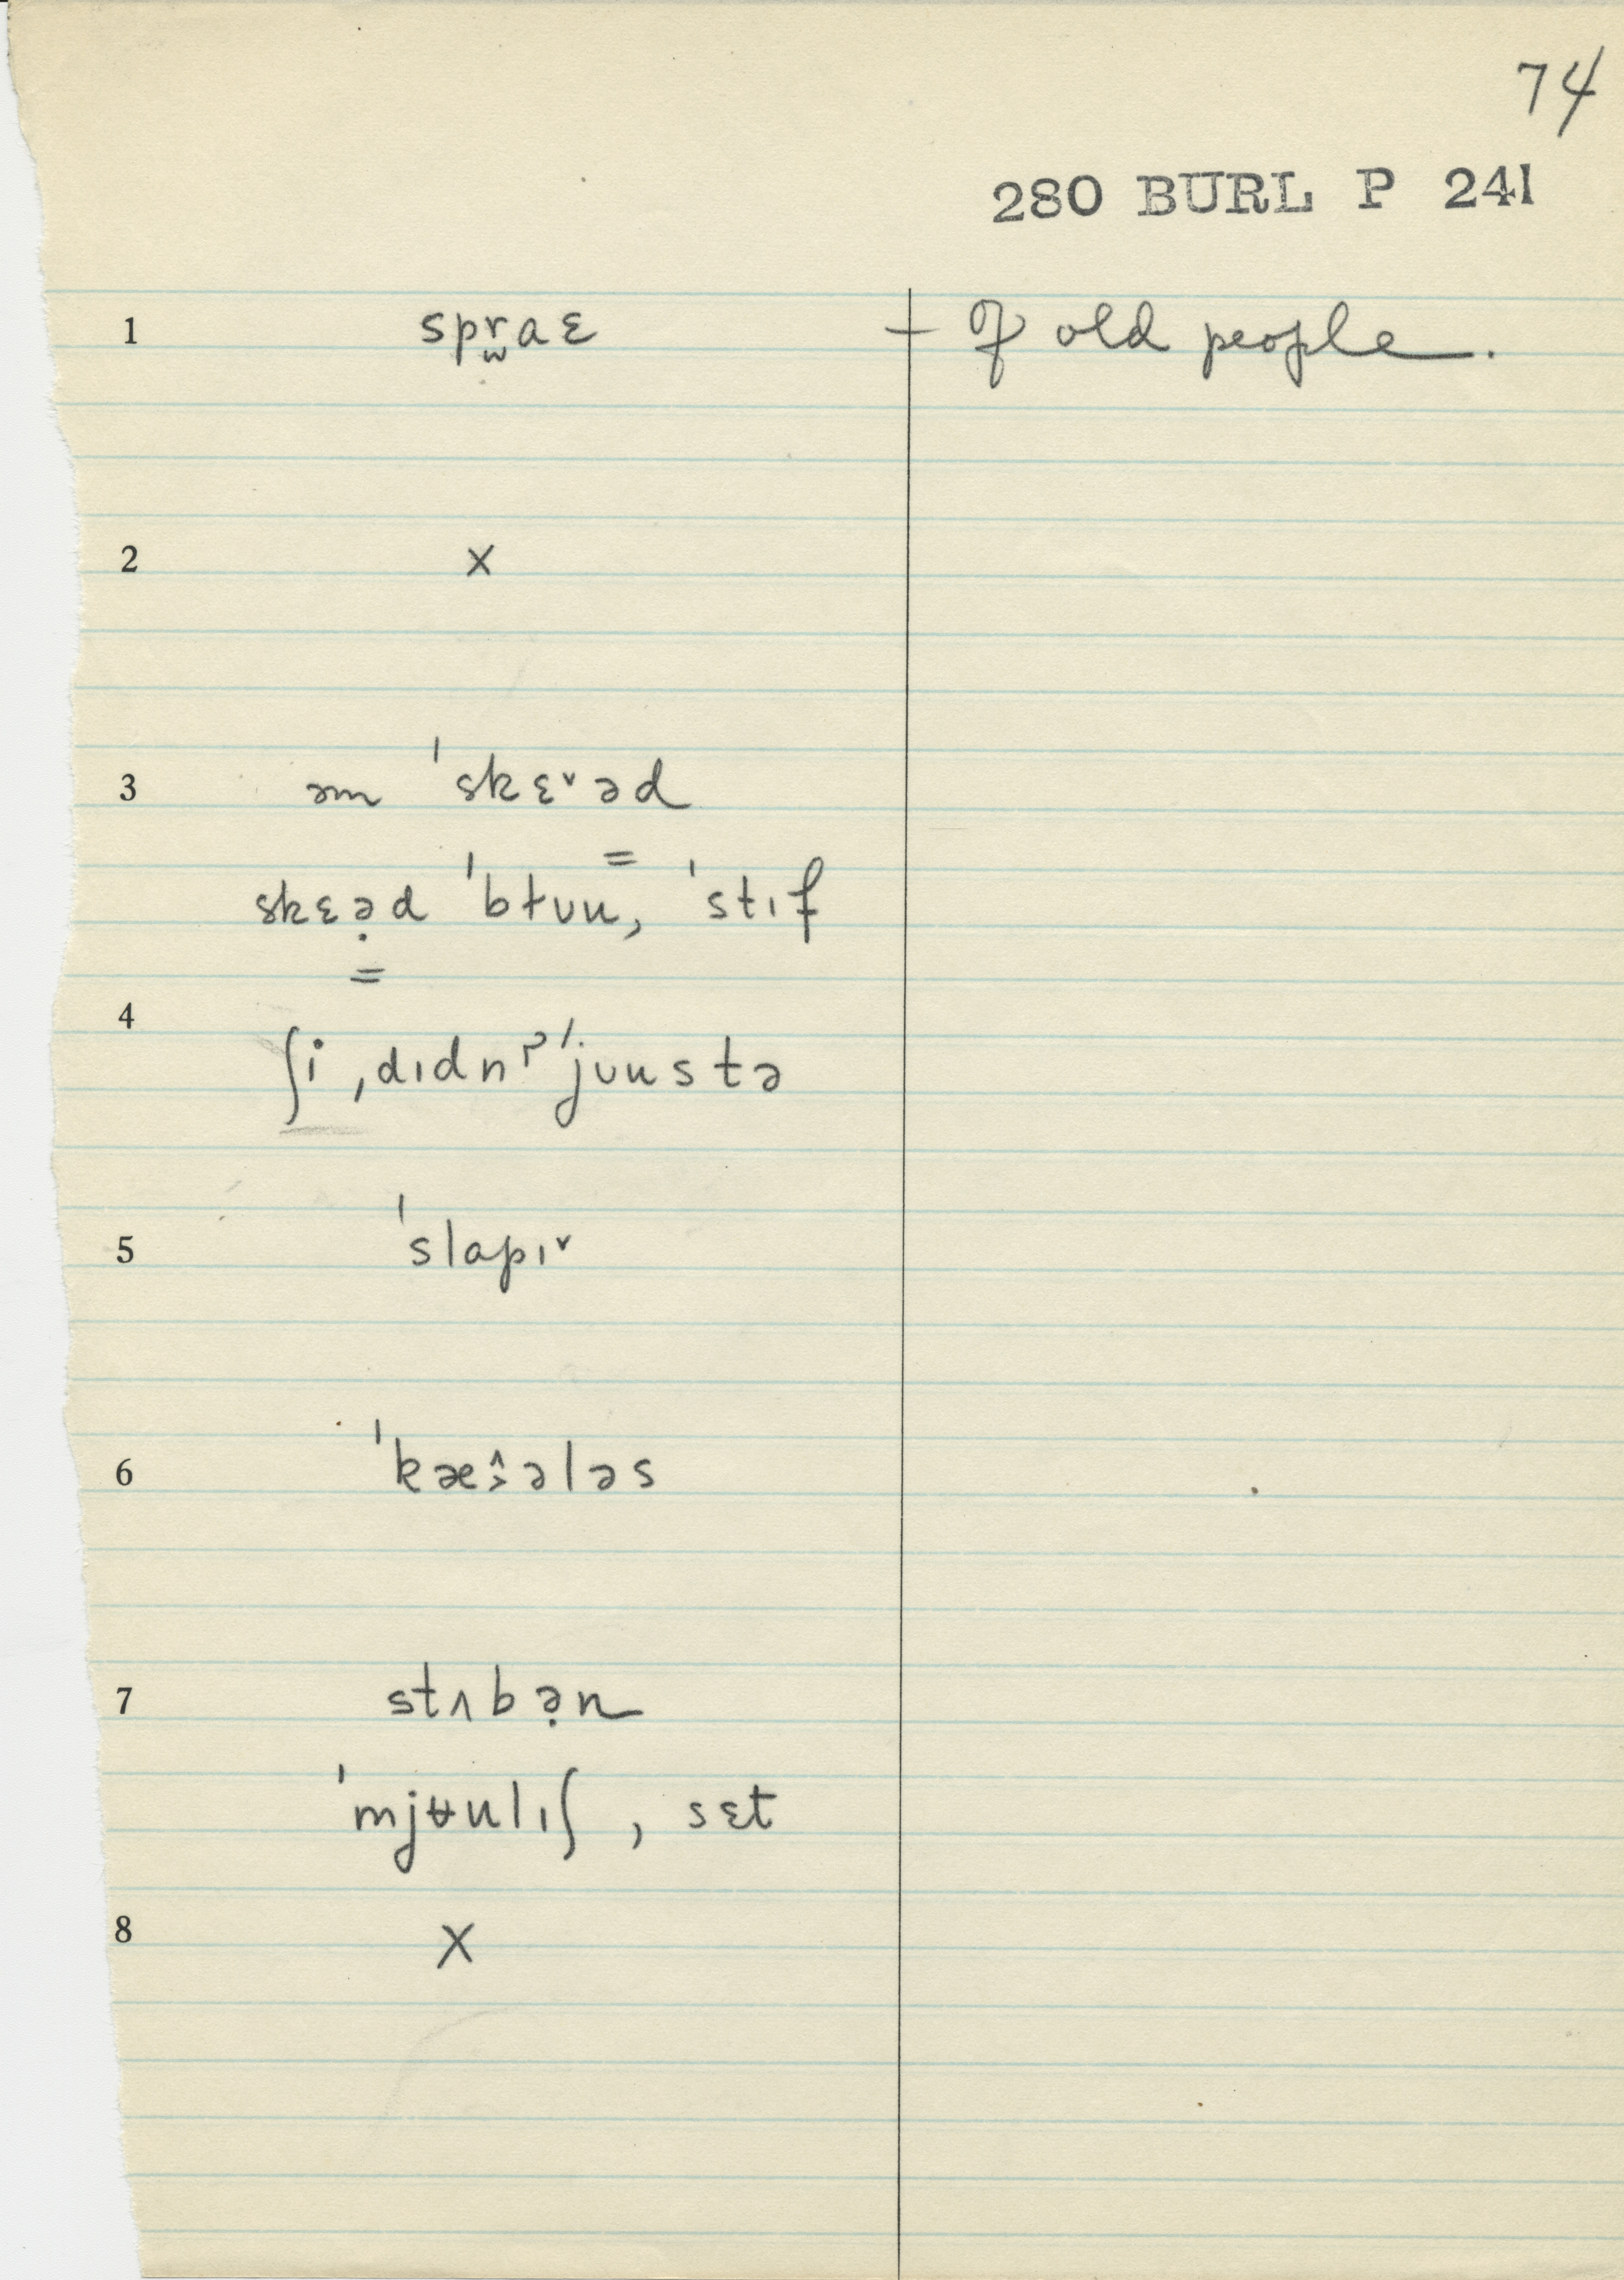 74
280 BURL P 241
1 spr̫aɛ + Of old people.
2 x
3 əm ˈskɛ˅əd
skɛə̣d ˈbɫʊu, ˈstɪf
4
ʃi ˌdɪdnˀˈjʊustə
5 ˈslapɪ˅
6 ˈkæ˄˃ələs
7 stʌbə̣n
ˈmjʉulɪʃ, sɛt
8 X